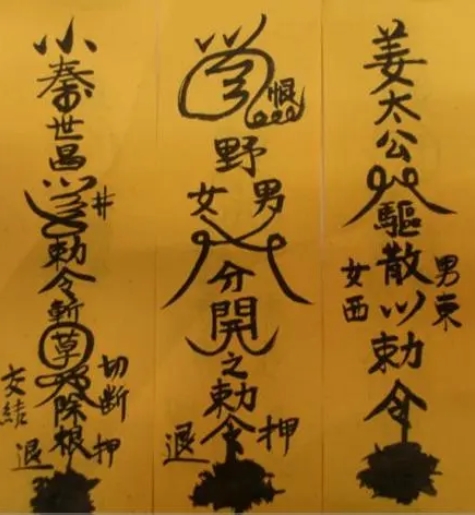 姜太公
驅散
男東
女西
勅令
恨
野
男
女
分開之勅令
押
退
小秦世昌
井
勅令斬草除根
切断
交結
押
退